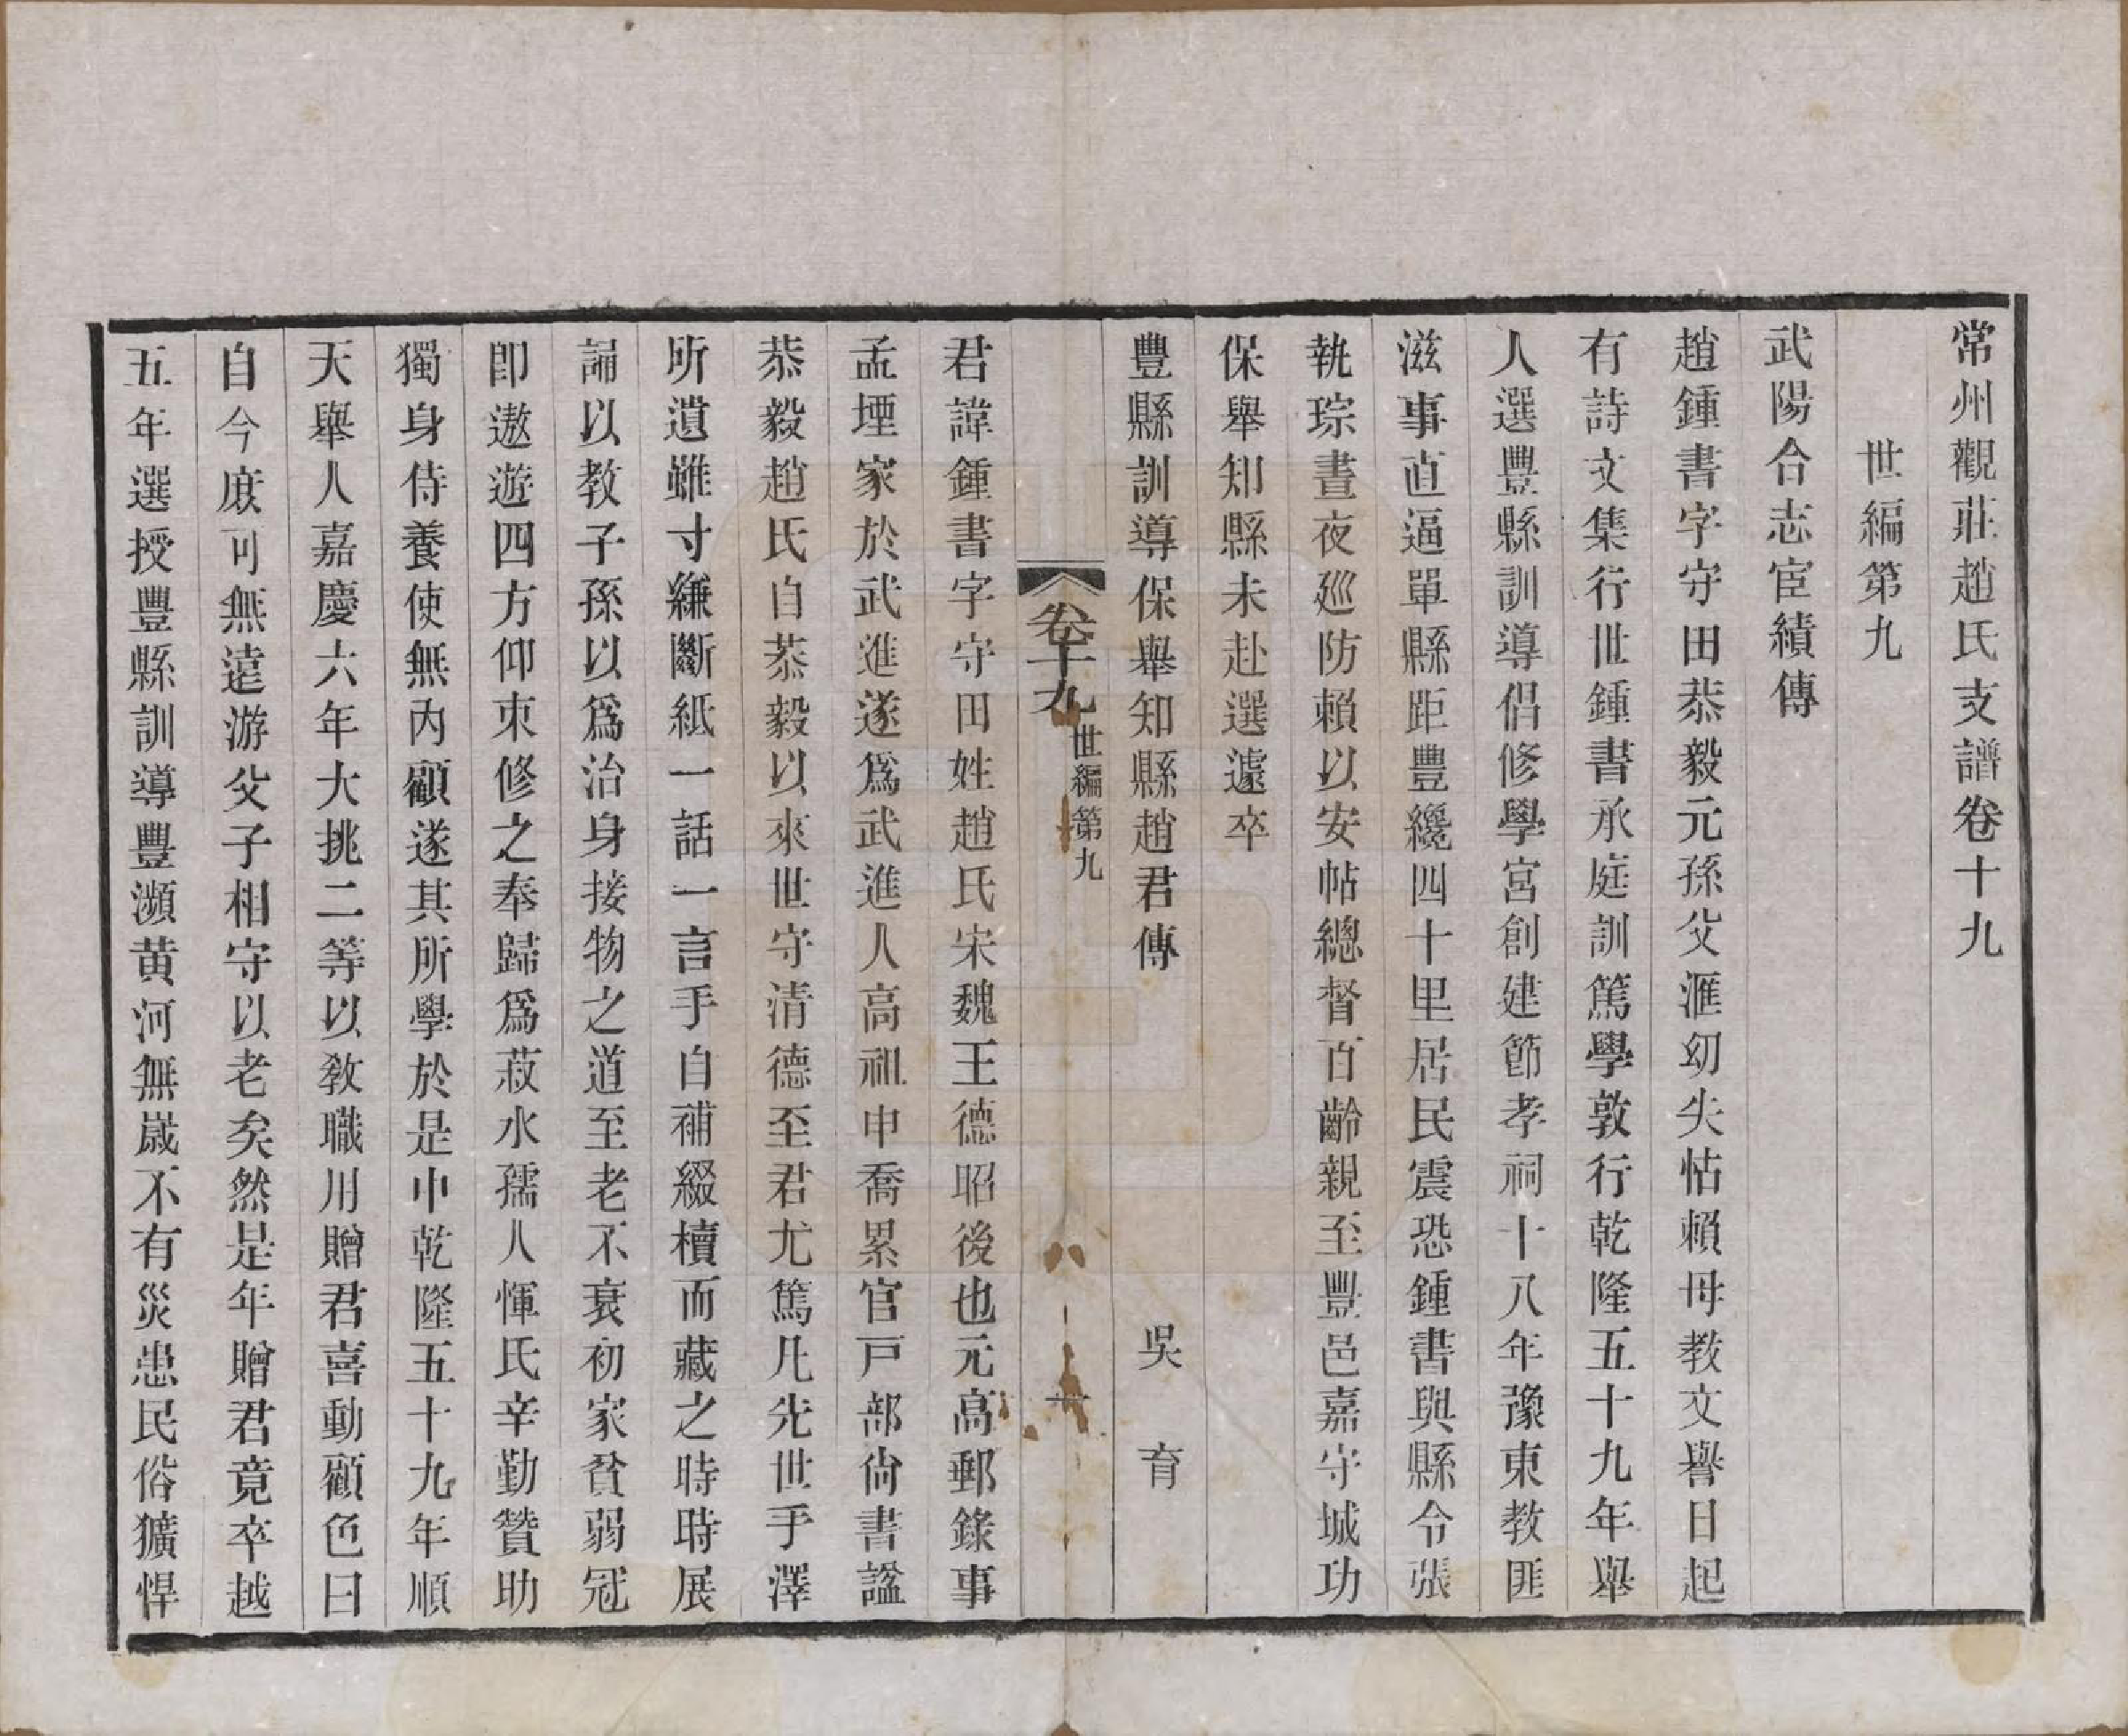 常州觀莊趙氏支譜卷十九
世編第九
武陽合志宦績傳
趙鍾書字守田恭毅元孫父滙幼失怙賴母教文譽日起
有詩文集行世鍾書承庭訓篤學敦行乾隆五十九年舉
人選豐縣訓導倡修學宮創建節孝祠十八年豫東教匪
滋事直逼單縣距豐纔四十里居民震恐鍾書與縣令張
執琮晝夜廵防賴以安帖總督百齡親至豐邑嘉守城功
保舉知縣未赴選遽卒
豐縣訓導保舉知縣趙君傳
吳育
卷十九
世編第九
一
君諱鍾書字守田姓趙氏宋魏王德昭後也元高郵錄事
孟堙家於武進遂爲武進人高祖申喬累官戸部尙書諡
恭毅趙氏自恭毅以來世守清德至君尤篤凡先世手澤
所遺雖寸縑斷紙一話一言手自補綴櫝而藏之時時展
誦以教子孫以爲治身接物之道至老不衰初家貧弱冠
卽遨遊四方仰束修之奉歸爲菽水孺人惲氏辛勤贊助
獨身侍養使無內顧遂其所學於是中乾隆五十九年順
天舉人嘉慶六年大挑二等以敎職用贈君喜動顧色曰
自今庶可無遠游父子相守以老矣然是年贈君竟卒越
五年選授豐縣訓導豐瀕黃河無歲不有災患民俗獷悍